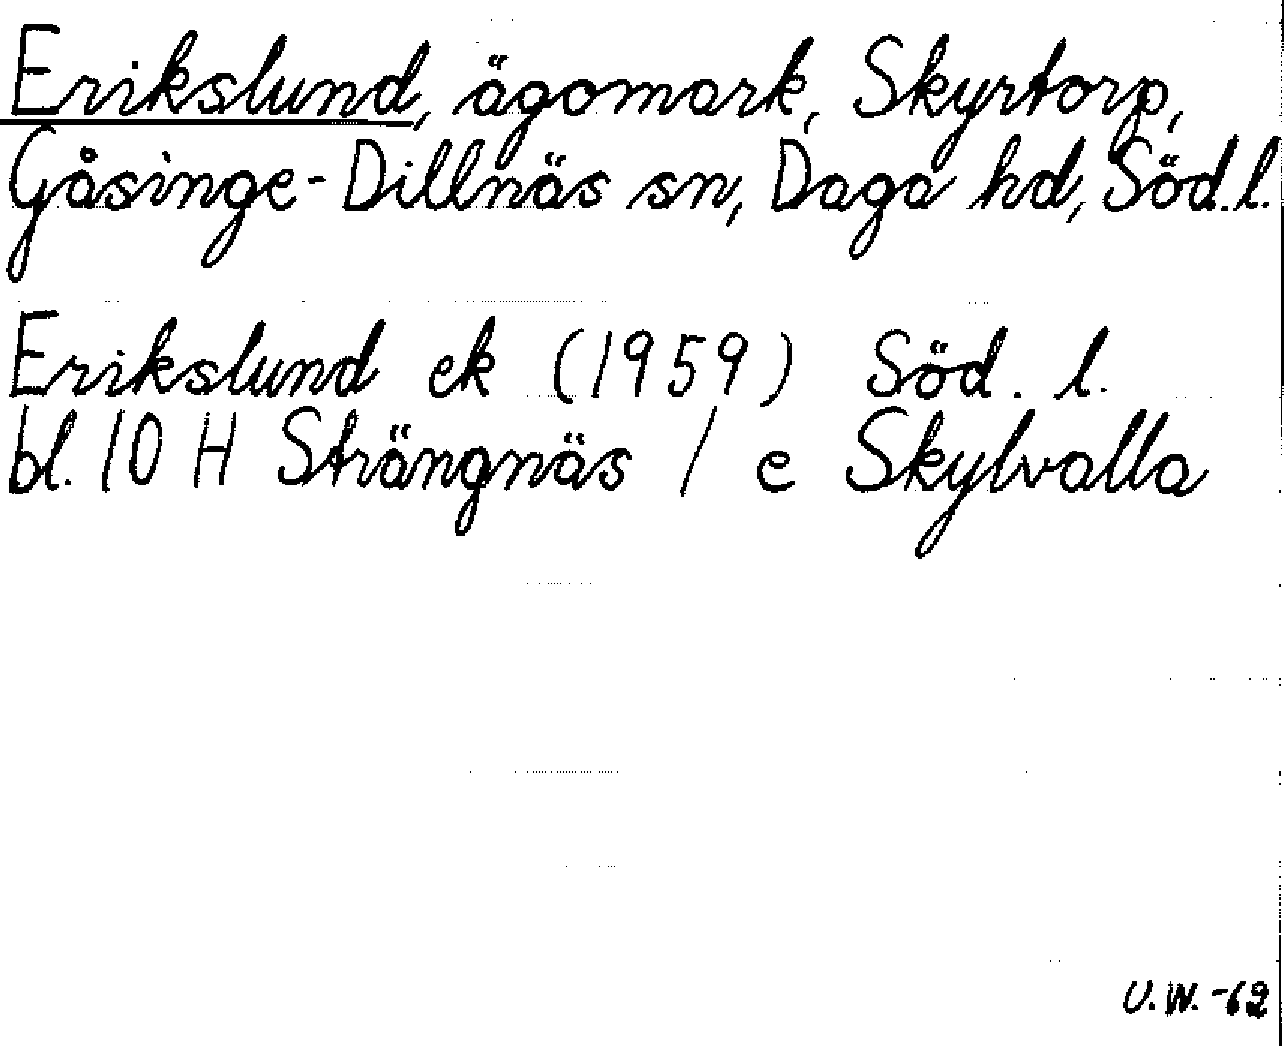 Erikslund, ägomark, Skyrtorp,
Gåsinge-Dillnäs sn, Daga hd, Söd.l.
Erikslund ek (1959) Söd. l.
bl. 10 H Strängnäs / e Skylvalla
U.W. -62